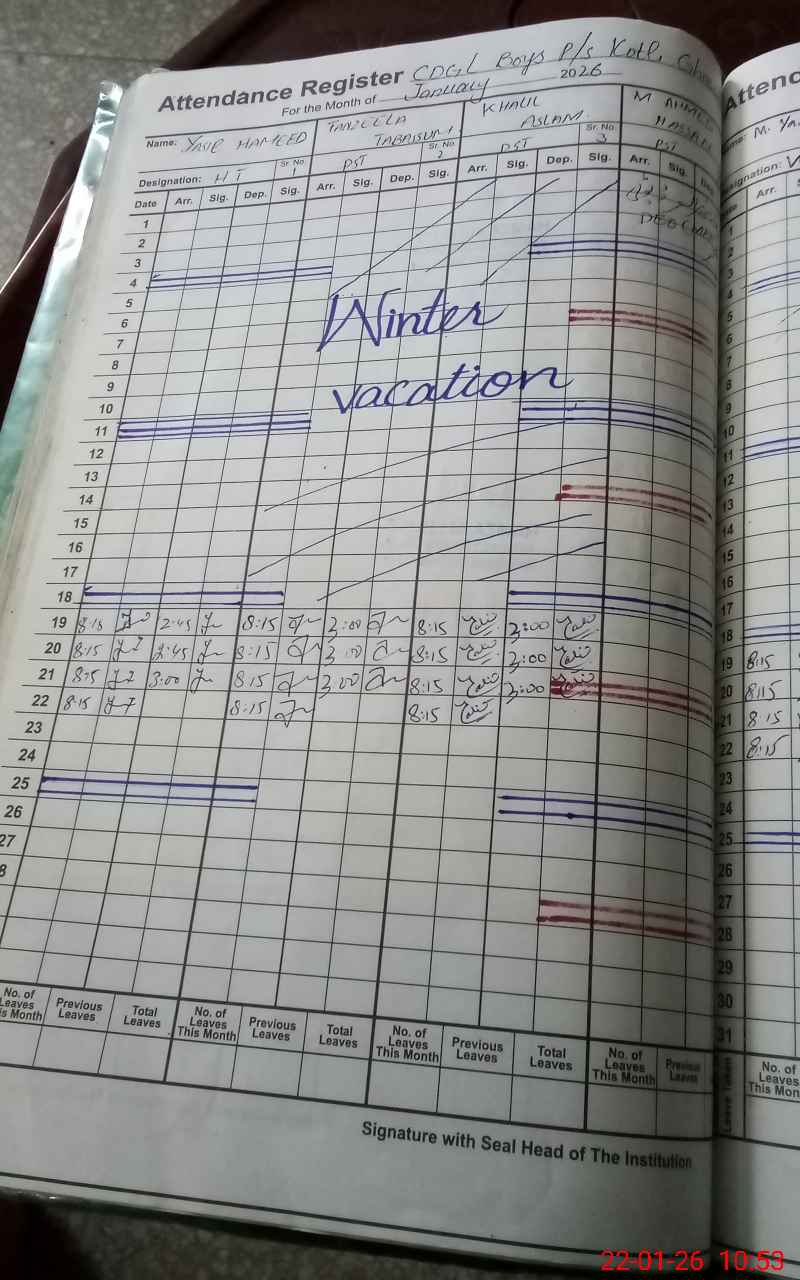 Attendance Register CDGL Boys P/s
For the Month of January 2026
Name: YASIR HAMEED TANZEELA TABASUM KHALIL ASLAM M AHMED
Sr. No. 1 Sr. No. 2 Sr. No. 3
Designation: HT PST PST PST
Date Arr. Sig. Dep. Sig. Arr. Sig. Dep. Sig. Arr. Sig. Dep. Sig. Arr. Sig.
1
2
3
4
5
Winter
6
7
8
vacation
9
10
11
12
13
14
15
16
17
18
19 8:15 2:45 8:15 3:00 8:15 3:00
20 8:15 2:45 8:15 3:00 8:15 3:00
21 8:15 3:00 8:15 3:00 8:15 3:00
22 8:15 8:15 8:15
23
24
25
26
27
8
No. of Leaves This Month Previous Leaves Total Leaves No. of Leaves This Month Previous Leaves Total Leaves No. of Leaves This Month Previous Leaves Total Leaves No. of Leaves This Month Previous Leaves
Signature with Seal Head of The Institution
Attend
M. Ya
Arr.
1
2
3
4
5
6
7
8
9
10
11
12
13
14
15
16
17
18
19 8:15
20 8:15
21 8:15
22 8:15
23
24
25
26
27
28
29
30
31
No. of
Leaves
This Mon
22-01-26 10:53